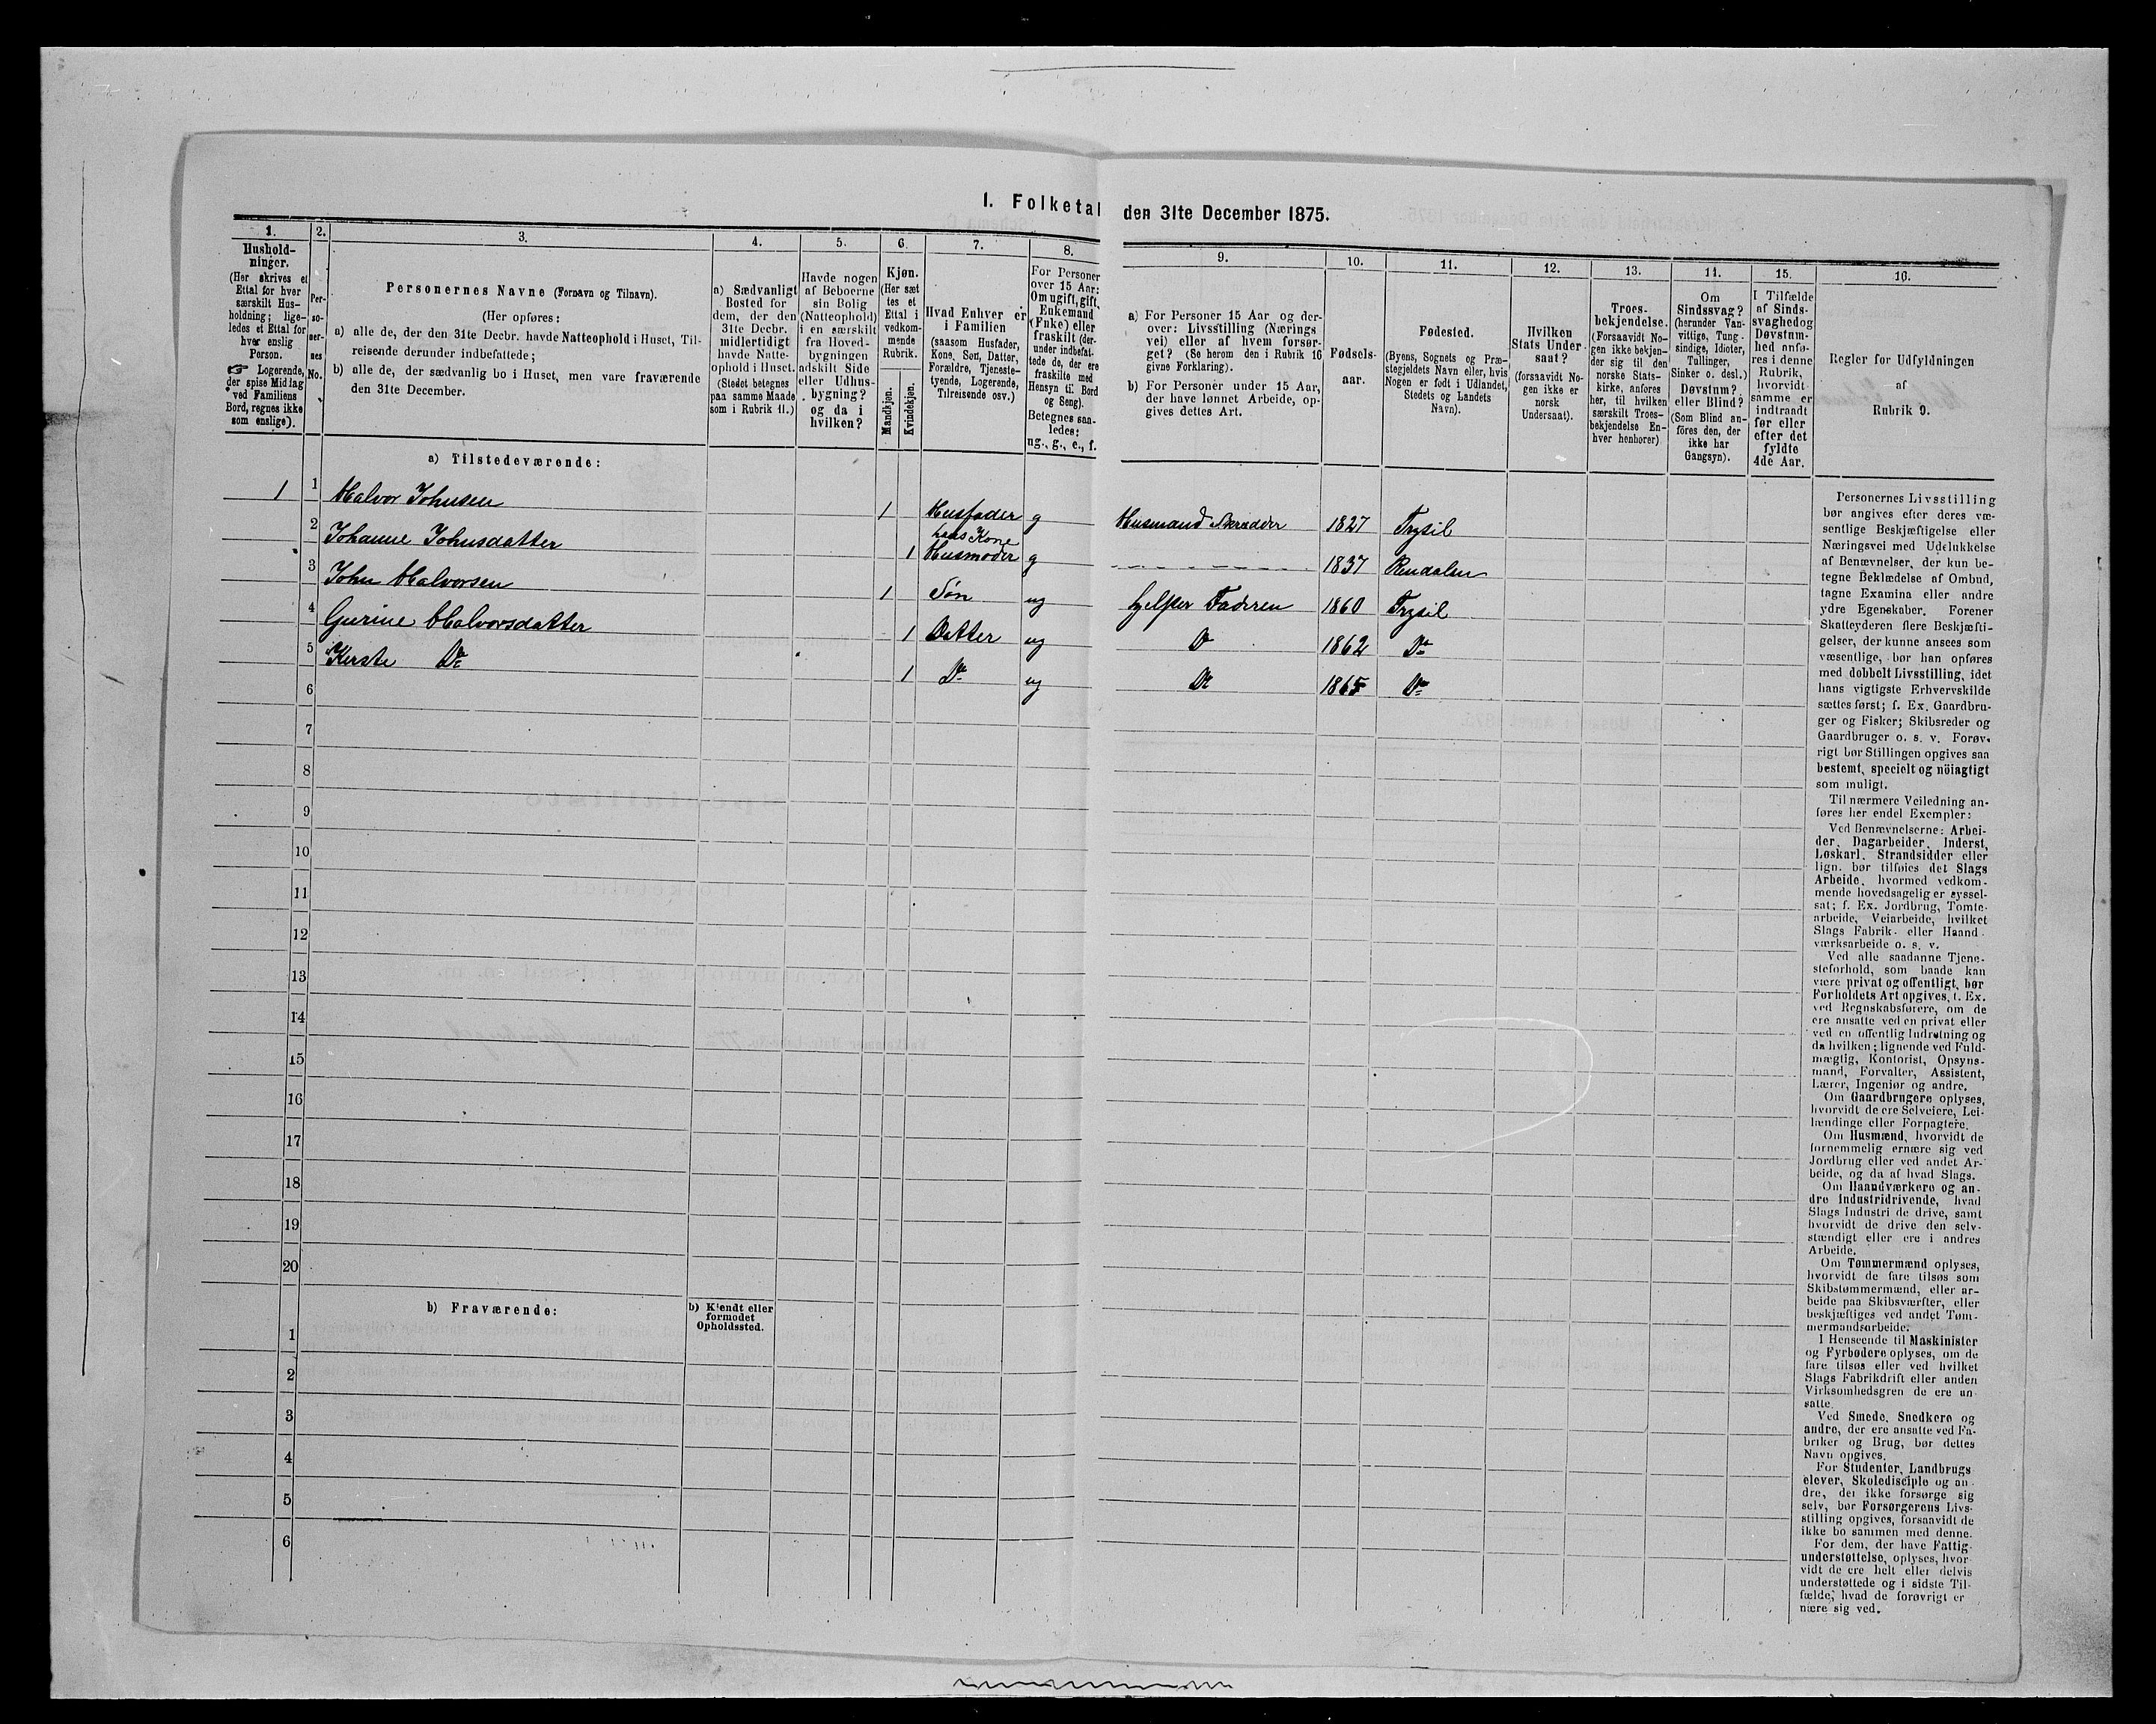 1. Folketal den 31te December 1875.
1.
Hushold-
ninger.
(Her skrives et
Ettal for hver
særskilt Hus-
holdning; lige-
ledes et Ettal for
hver enslig
Person.
☞ Logerende,
der spise Middag
ved Familiens
Bord, regnes ikke
som enslige).
2.
Per-
so-
ner-
nes
No.
3.
Personernes Navne (Fornavn og Tilnavn).
(Her opføres:
a) alle de, der den 31te Decbr. havde Natteophold i Huset, Til-
reisende derunder indbefattede;
b) alle de, der sædvanlig bo i Huset, men vare fraværende
den 31te December.
4.
a) Sædvanligt
Bosted for
dem, der den
31te Decbr.
midlertidigt
havde Natte-
ophold i Huset.
(Stedet betegnes
paa samme Maade
som i Rubrik 11.)
5.
Havde nogen
af Beboerne
sin Bolig
(Natteophold)
i en særskilt
fra Hoved-
bygningen
adskilt Side
eller Udhus-
bygning?
og da i
hvilken?
6.
Kjøn.
(Her sæt
tes et
Ettal i
vedkom-
mende
Rubrik.
Mandkjøn.
Kvindekjøn.
7.
Hvad Enhver er
i Familien
(saasom Husfader,
Kone, Søn, Datter,
Forældre, Tjeneste-
tyende, Logerende,
Tilreisende osv.)
8.
For Personer
over 15 Aar:
Om ugift, gift,
Enkemand
(Enke) eller
fraskilt (der-
under indbefat-
tede de, der ere
fraskilte med
Hensyn til Bord
og Seng).
Betegnes saa-
ledes:
ug., g., e., f.
9.
a) For Personer 15 Aar og der-
over: Livsstilling (Nærings
vei) eller af hvem forsør-
get? (Se herom den i Rubrik 16
givne Forklaring).
b) For Personer under 15 Aar,
der have lønnet Arbeide, op-
gives dettes Art.
10.
Fødsels-
aar.
11.
Fødested.
(Byens, Sognets og Præ-
stegjeldets Navn eller, hvis
Nogen er født i Udlandet,
Stedets og Landets
Navn).
12.
Hvilken
Stats Under
saat?
(forsaavidt No-
gen ikke er
norsk
Undersaat).
13.
Troes-
bekjendelse.
(Forsaavidt No-
gen ikke bekjen-
der sig til den
norske Stats-
kirke, anføres
her, til hvilken
særskilt Troes-
bekjendelse En-
hver henhører)
14.
Om
Sindssvag?
(herunder Van-
vittige, Tung-
sindige, Idioter,
Tullinger,
Sinker o. desl.)
Døvstum?
eller Blind?
(Som Blind an-
føres den, der
ikke har
Gangsyn).
15.
I Tilfælde
af Sinds-
svaghed og
Døvstum-
hed anfø-
res i denne
Rubrik,
hvorvidt
samme er
indtraadt
før eller
efter det
fyldte
4de Aar.
16.
Regler for Udfyldningen
af
Rubrik 9.
a) Tilstedeværende:
1 1 Halvor Johnsen 1 Husfader g Husmand Skrædder 1827 Trysil
hans Kone
2 Johanne Johnsdatter 1 Husmoder g 1837 Rendalen
3 John Halvorsen 1 Søn ug hjelper Faderen 1860 Trysil
4 Gurine Halvorsdatter 1 Datter ug Do 1862 Do
5 Kerste Do 1 Do ug Do 1865 Do
6
7
8
9
10
11
12
13
14
15
16
17
18
19
20
b) Fraværende:
b) Kjendt eller
formodet
Opholdssted.
1
2
3
4
5
6
Personernes Livsstilling
bør angives efter deres væ-
sentlige Beskjæftigelse eller
Næringsvei med Udelukkelse
af Benævnelser, der kun be-
tegne Beklædelse af Ombud,
tagne Examina eller andre
ydre Egenskaber. Forener
Skatteyderen flere Beskjæfti-
gelser, der kunne ansees som
væsentlige, bør han opføres
med dobbelt Livsstilling, idet
hans vigtigste Erhvervskilde
sættes først; f. Ex. Gaardbru-
ger og Fisker; Skibsreder og
Gaardbruger o. s. v. Forøv-
rigt bør Stillingen opgives saa
bestemt, specielt og nöiagtigt
som muligt.
Til nærmere Veiledning an-
føres her endel Exempler:
Ved Benævnelserne: Arbei-
der, Dagarbeider, Inderst,
Løskarl, Strandsidder eller
lign. bør tilføies det Slags
Arbeide, hvormed vedkom-
mende hovedsagelig er syssel-
sat; f. Ex. Jordbrug, Tomte-
arbeide, Veiarbeide, hvilket
Slags Fabrik- eller Haand-
værksarbeide o. s. v.
Ved alle saadanne Tjene-
steforhold, som baade kan
være privat og offentligt, bør
Forholdets Art opgives, f. Ex.
ved Regnskabsførere, om de
ere ansatte ved en privat eller
ved en offentlig Indretning og
da hvilken; lignende ved Fuld-
mægtig, Kontorist, Opsyns-
mand, Forvalter, Assistent,
Lærer, Ingeniør og andre.
Om Gaardbrugere oplyses,
hvorvidt de ere Selveiere, Lei-
lændinge eller Forpagtere.
Om Husmænd, hvorvidt de
fornemmelig ernære sig ved
Jordbrug eller ved andet Ar-
beide, og da af hvad Slags.
Om Haandværkere og an-
dre Industridrivende, hvad
Slags Industri de drive, samt
hvorvidt de drive den selv-
stændigt eller ere i andres
Arbeide.
Om Tømmermænd oplyses,
hvorvidt de fare tilsøs som
Skibstømmermænd, eller ar-
beide paa Skibsværfter, eller
beskjæftiges ved andet Tøm-
mermandsarbeide.
I Henseende til Maskinister
og Fyrbødere oplyses, om de
fare tilsøs eller ved hvilket
Slags Fabrikdrift eller anden
Virksomhedsgren de ere an-
satte.
Ved Smede, Snedkere og
andre, der ere ansatte ved Fa-
briker og Brug, bør dettes
Navn opgives.
For Studenter, Landbrugs
elever, Skoledisciple og an-
dre, der ikke forsørge sig
selv, bør Forsørgerens Livs-
stilling opgives, forsaavidt de
ikke bo sammen med denne.
For dem, der have Fattig-
understøttelse, oplyses, hvor-
vidt de ere helt eller delvis
understøttede og i sidste Til-
fælde, hvad de forøvrigt er
nære sig ved.